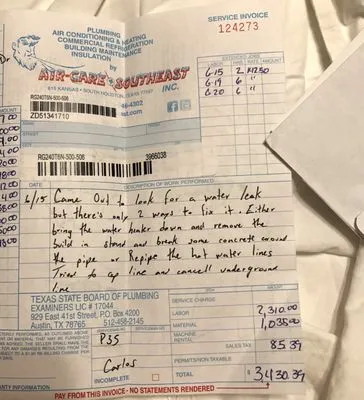 PLUMBING
AIR CONDITIONING & HEATING
COMMERCIAL REFRIGERATION
BUILDING MAINTENANCE
INSULATION
by
AIR-CARE SOUTHEAST
INC.
615 KANSAS • SOUTH HOUSTON, TEXAS 77587
SERVICE INVOICE
124273
LABOR HRS
6/15 2
6/19 6 "
6/20 6 "
RG240T6N-500-506
ZD51341710
-4302
st.com
RG240T6N-500-506 3966038
DATE DESCRIPTION OF WORK PERFORMED
6/15 Came Out to look for a water leak
but there's only 2 ways to fix it. Either
bring the water heater down and remove the
build in stand and break some concrete around
the pipe or Repipe the hot water lines
Tried to cap line and cancell underground
line
TEXAS STATE BOARD OF PLUMBING
EXAMINERS LIC # 17044
929 East 41st Street, P.O. Box 4200
Austin, TX 78765 512-458-2145
SERVICE CHARGE
LABOR 2,310.00
MATERIAL 1,035.00
MACHINE
RENTAL
SALES TAX 85.39
PERMITS/NON TAXABLE
TOTAL $ 3,430.39
P35
Carlos
INCOMPLETE
AMOUNT
WARRANTY INFORMATION
PAY FROM THIS INVOICE - NO STATEMENTS RENDERED